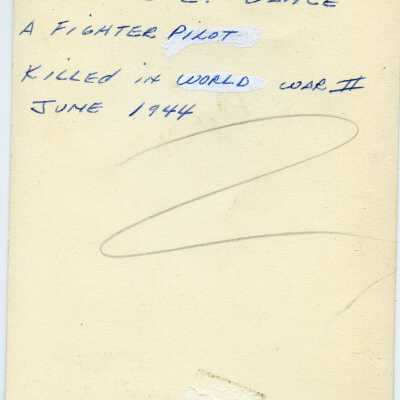 A FIGHTER PILOT
KILLED IN WORLD WAR II
JUNE 1944